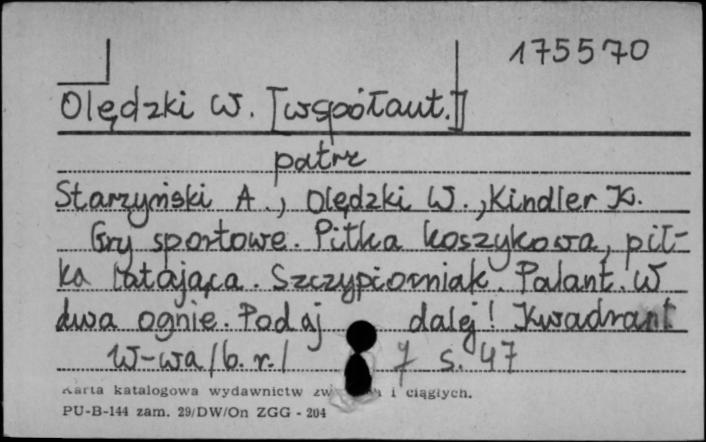 175570
Olędzki W. [współaut.]
patrz
Starzyński A., Olędzki W., Kindler K.
Gry sportowe. Piłka koszykowa, pił-
ka latająca. Szczypiorniak. Palant. W
dwa ognie. Podaj dalej! Kwadrant
W-wa /b. r./ 7 s. 47
Karta katalogowa wydawnictw i ciągłych.
PU-B-144 zam. 29/DW/On ZGG - 204